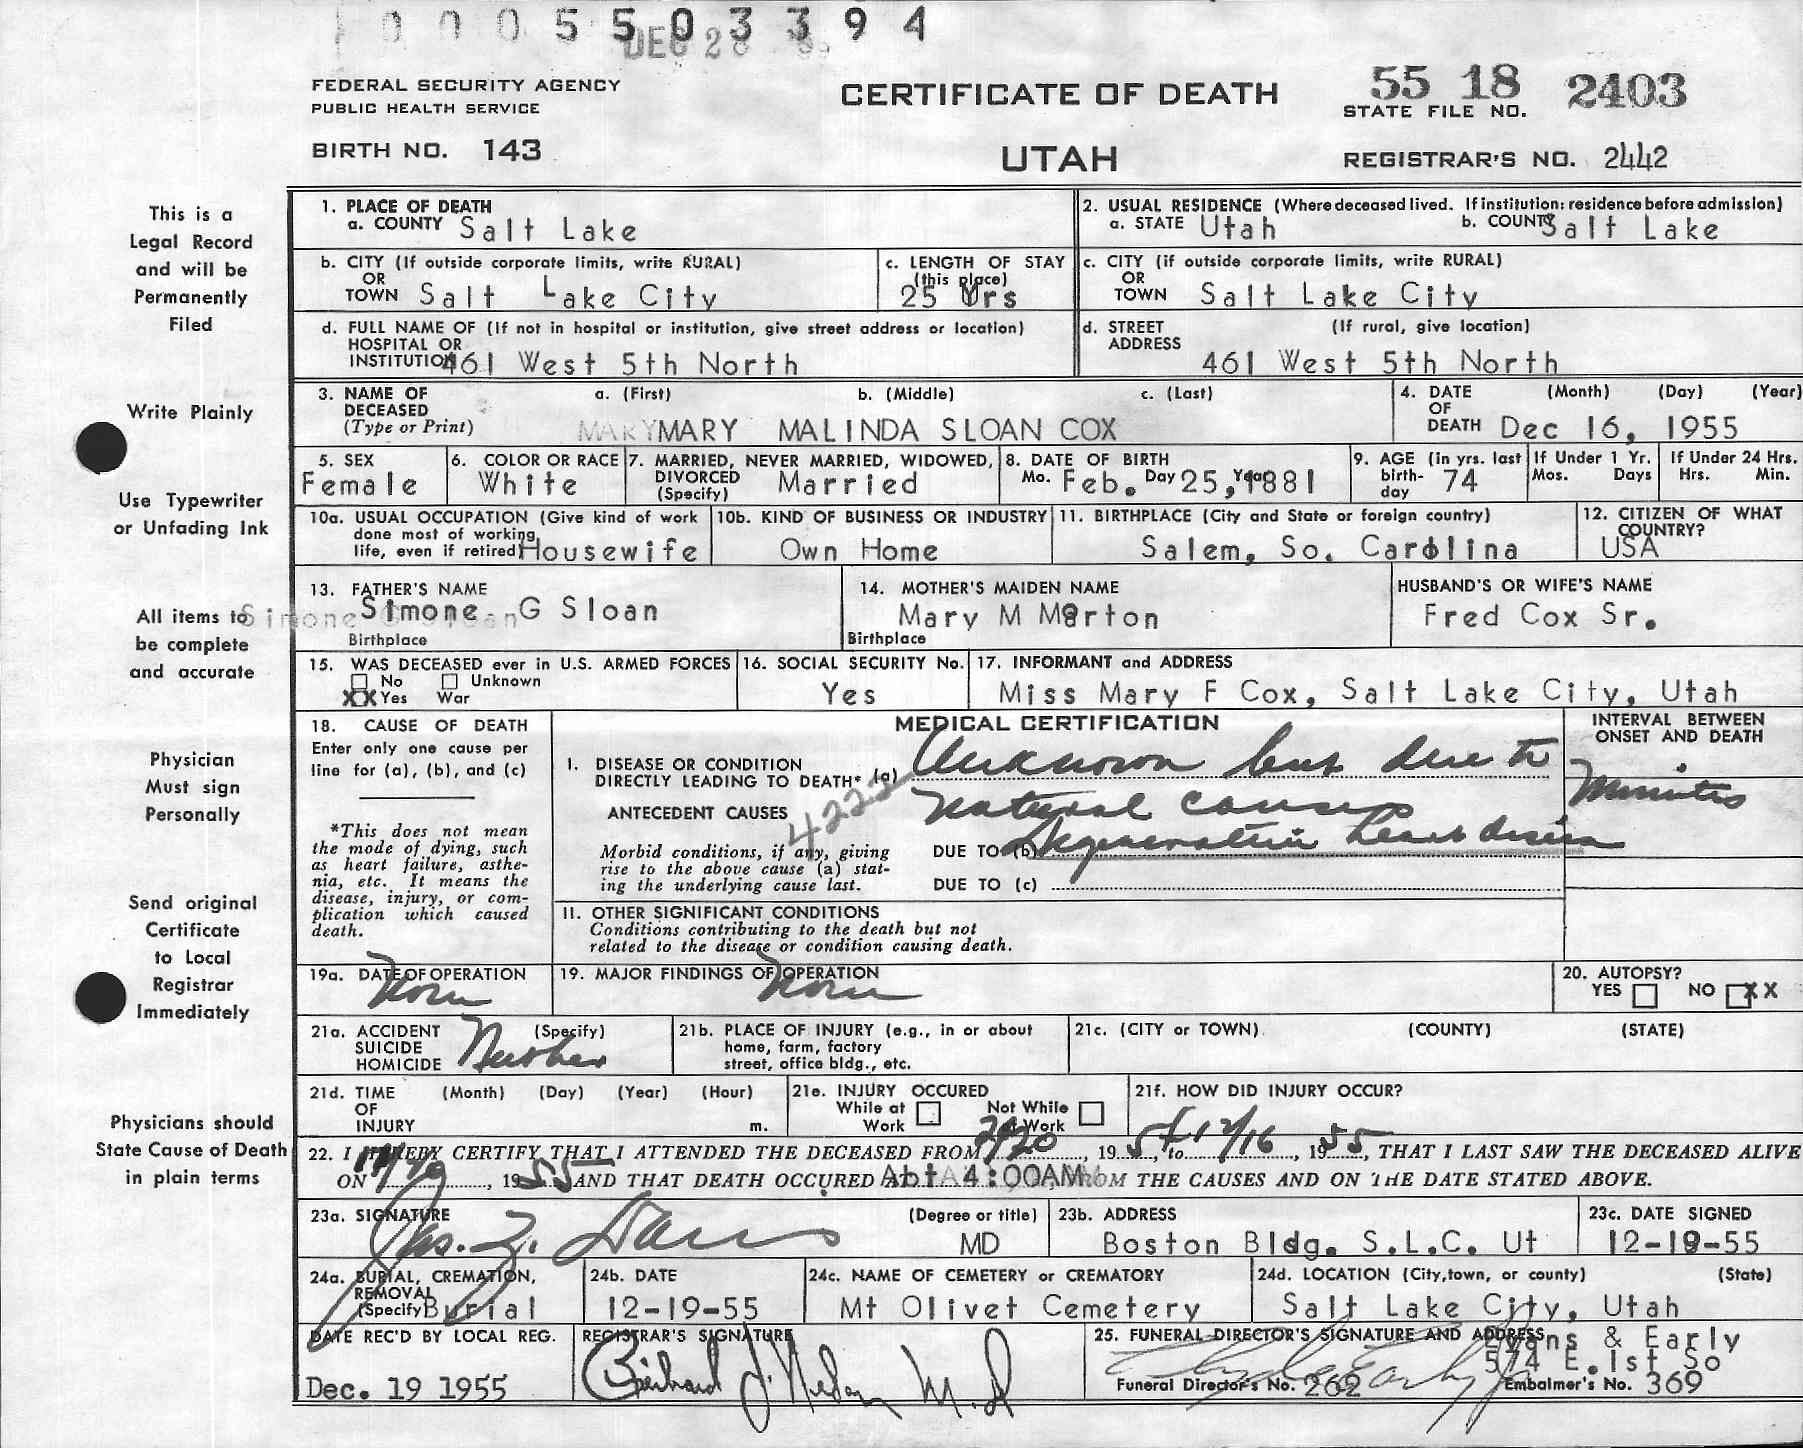 0005503394
DEC 28
FEDERAL SECURITY AGENCY
PUBLIC HEALTH SERVICE
CERTIFICATE OF DEATH
55 18 2403
STATE FILE NO.
BIRTH NO. 143
UTAH
REGISTRAR'S NO. 2442
This is a
Legal Record
and will be
Permanently
Filed
Write Plainly
Use Typewriter
or Unfading Ink
All items to
be complete
and accurate
Physician
Must sign
Personally
Send original
Certificate
to Local
Registrar
Immediately
Physicians should
State Cause of Death
in plain terms
1. PLACE OF DEATH
a. COUNTY Salt Lake
2. USUAL RESIDENCE (Where deceased lived. If institution: residence before admission)
a. STATE Utah b. COUNTY Salt Lake
b. CITY (If outside corporate limits, write RURAL)
OR
TOWN Salt Lake City
c. LENGTH OF STAY
(this place)
25 Yrs
c. CITY (if outside corporate limits, write RURAL)
OR
TOWN Salt Lake City
d. FULL NAME OF (If not in hospital or institution, give street address or location)
HOSPITAL OR
INSTITUTION 461 West 5th North
d. STREET (If rural, give location)
ADDRESS
461 West 5th North
3. NAME OF a. (First) b. (Middle) c. (Last)
DECEASED
(Type or Print) MARY MALINDA SLOAN COX
4. DATE (Month) (Day) (Year)
OF
DEATH Dec 16, 1955
5. SEX
Female
6. COLOR OR RACE
White
7. MARRIED, NEVER MARRIED, WIDOWED,
DIVORCED
(Specify) Married
8. DATE OF BIRTH
Mo. Feb. Day 25, Year 1881
9. AGE (in yrs. last
birth-
day 74
If Under 1 Yr.
Mos. Days
If Under 24 Hrs.
Hrs. Min.
10a. USUAL OCCUPATION (Give kind of work
done most of working
life, even if retired) Housewife
10b. KIND OF BUSINESS OR INDUSTRY
Own Home
11. BIRTHPLACE (City and State or foreign country)
Salem, So. Carolina
12. CITIZEN OF WHAT
COUNTRY?
USA
13. FATHER'S NAME
Simone G Sloan
Birthplace
14. MOTHER'S MAIDEN NAME
Mary M Morton
Birthplace
HUSBAND'S OR WIFE'S NAME
Fred Cox Sr.
15. WAS DECEASED ever in U.S. ARMED FORCES
No Unknown
XX Yes War
16. SOCIAL SECURITY No.
Yes
17. INFORMANT and ADDRESS
Miss Mary F Cox, Salt Lake City, Utah
18. CAUSE OF DEATH
Enter only one cause per
line for (a), (b), and (c)
*This does not mean
the mode of dying, such
as heart failure, asthe-
nia, etc. It means the
disease, injury, or com-
plication which caused
death.
MEDICAL CERTIFICATION
I. DISEASE OR CONDITION
DIRECTLY LEADING TO DEATH* (a) Unknown but due to
natural causes
422.2
ANTECEDENT CAUSES
Morbid conditions, if any, giving
rise to the above cause (a) stat-
ing the underlying cause last.
DUE TO (b) Degenerative heart disease
DUE TO (c)
INTERVAL BETWEEN
ONSET AND DEATH
Minutes
II. OTHER SIGNIFICANT CONDITIONS
Conditions contributing to the death but not
related to the disease or condition causing death.
19a. DATE OF OPERATION
None
19. MAJOR FINDINGS OF OPERATION
None
20. AUTOPSY?
YES NO XX
21a. ACCIDENT (Specify)
SUICIDE
HOMICIDE Neither
21b. PLACE OF INJURY (e.g., in or about
home, farm, factory
street, office bldg., etc.
21c. (CITY or TOWN) (COUNTY) (STATE)
21d. TIME (Month) (Day) (Year) (Hour)
OF
INJURY m.
21e. INJURY OCCURED
While at Not While
Work at Work
21f. HOW DID INJURY OCCUR?
22. I HEREBY CERTIFY THAT I ATTENDED THE DECEASED FROM 7/20, 195, to 12/16, 1955, THAT I LAST SAW THE DECEASED ALIVE
ON 11/20, 1955 AND THAT DEATH OCCURED Abt 4:00AM FROM THE CAUSES AND ON THE DATE STATED ABOVE.
23a. SIGNATURE (Degree or title)
Jas. Z. Davis MD
23b. ADDRESS
Boston Bldg. S.L.C. Ut
23c. DATE SIGNED
12-19-55
24a. BURIAL, CREMATION,
REMOVAL
(Specify) Burial
24b. DATE
12-19-55
24c. NAME OF CEMETERY or CREMATORY
Mt Olivet Cemetery
24d. LOCATION (City, town, or county) (State)
Salt Lake City, Utah
DATE REC'D BY LOCAL REG.
Dec. 19 1955
REGISTRAR'S SIGNATURE
M.D.
25. FUNERAL DIRECTOR'S SIGNATURE AND ADDRESS
Evans & Early
574 E. 1st So
Funeral Director's No. 262 Embalmer's No. 369